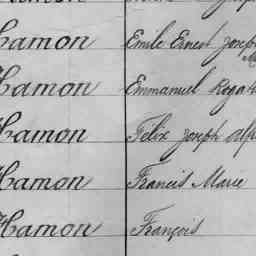 Hamon Emile Ernest Joseph
Hamon Emmanuel Rogat
Hamon Félix Joseph Alp
Hamon Francis Marie
Hamon François